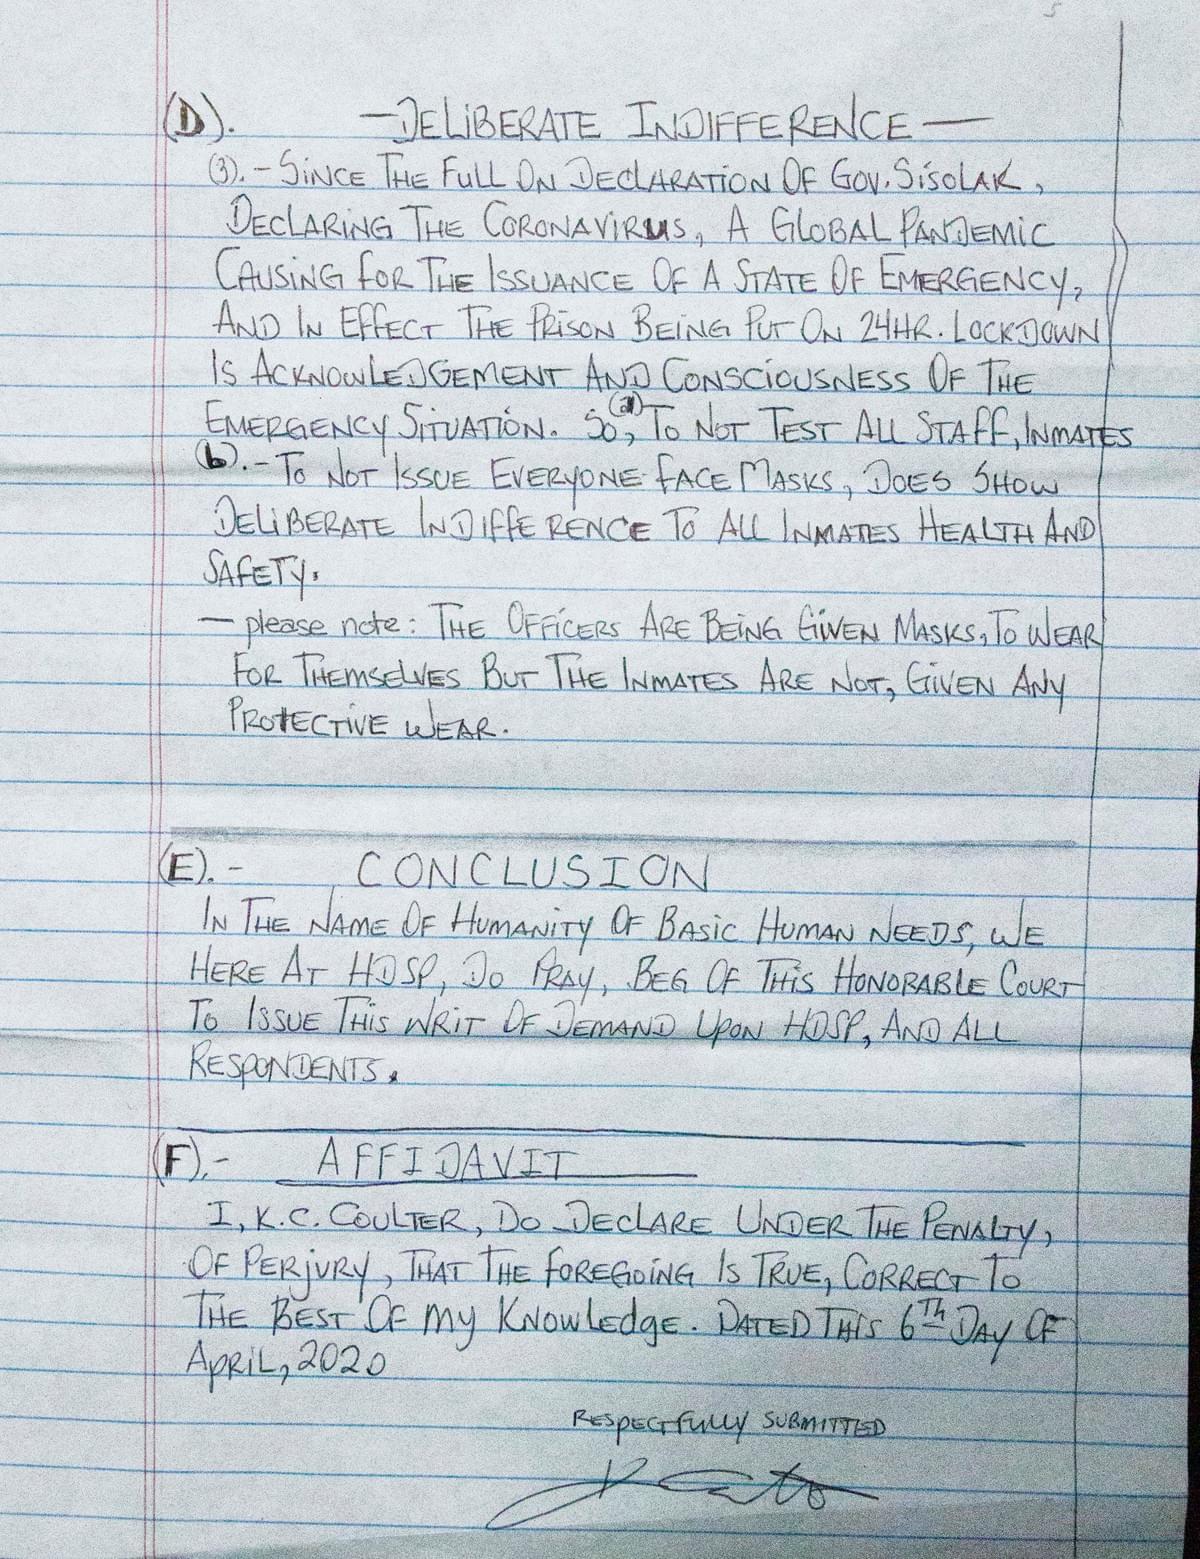 5
(D). —DELIBERATE INDIFFERENCE—
(3).- SINCE THE FULL ON DECLARATION OF GOV. SISOLAK,
DECLARING THE CORONAVIRUS, A GLOBAL PANDEMIC
CAUSING FOR THE ISSUANCE OF A STATE OF EMERGENCY,
AND IN EFFECT THE PRISON BEING PUT ON 24HR. LOCKDOWN
IS ACKNOWLEDGEMENT AND CONSCIOUSNESS OF THE
EMERGENCY SITUATION. SO, (a) TO NOT TEST ALL STAFF, INMATES
(b).- TO NOT ISSUE EVERYONE FACE MASKS, DOES SHOW
DELIBERATE INDIFFERENCE TO ALL INMATES HEALTH AND
SAFETY.
— please note: THE OFFICERS ARE BEING GIVEN MASKS, TO WEAR
FOR THEMSELVES BUT THE INMATES ARE NOT, GIVEN ANY
PROTECTIVE WEAR.
(E).- CONCLUSION
IN THE NAME OF HUMANITY OF BASIC HUMAN NEEDS, WE
HERE AT HDSP, DO PRAY, BEG OF THIS HONORABLE COURT
TO ISSUE THIS WRIT OF DEMAND UPON HDSP, AND ALL
RESPONDENTS.
(F).- AFFIDAVIT
I, K.C. COULTER, DO DECLARE UNDER THE PENALTY,
OF PERJURY, THAT THE FOREGOING IS TRUE, CORRECT TO
THE BEST OF MY KNOWLEDGE. DATED THIS 6TH DAY OF
APRIL, 2020
RESPECTFULLY SUBMITTED